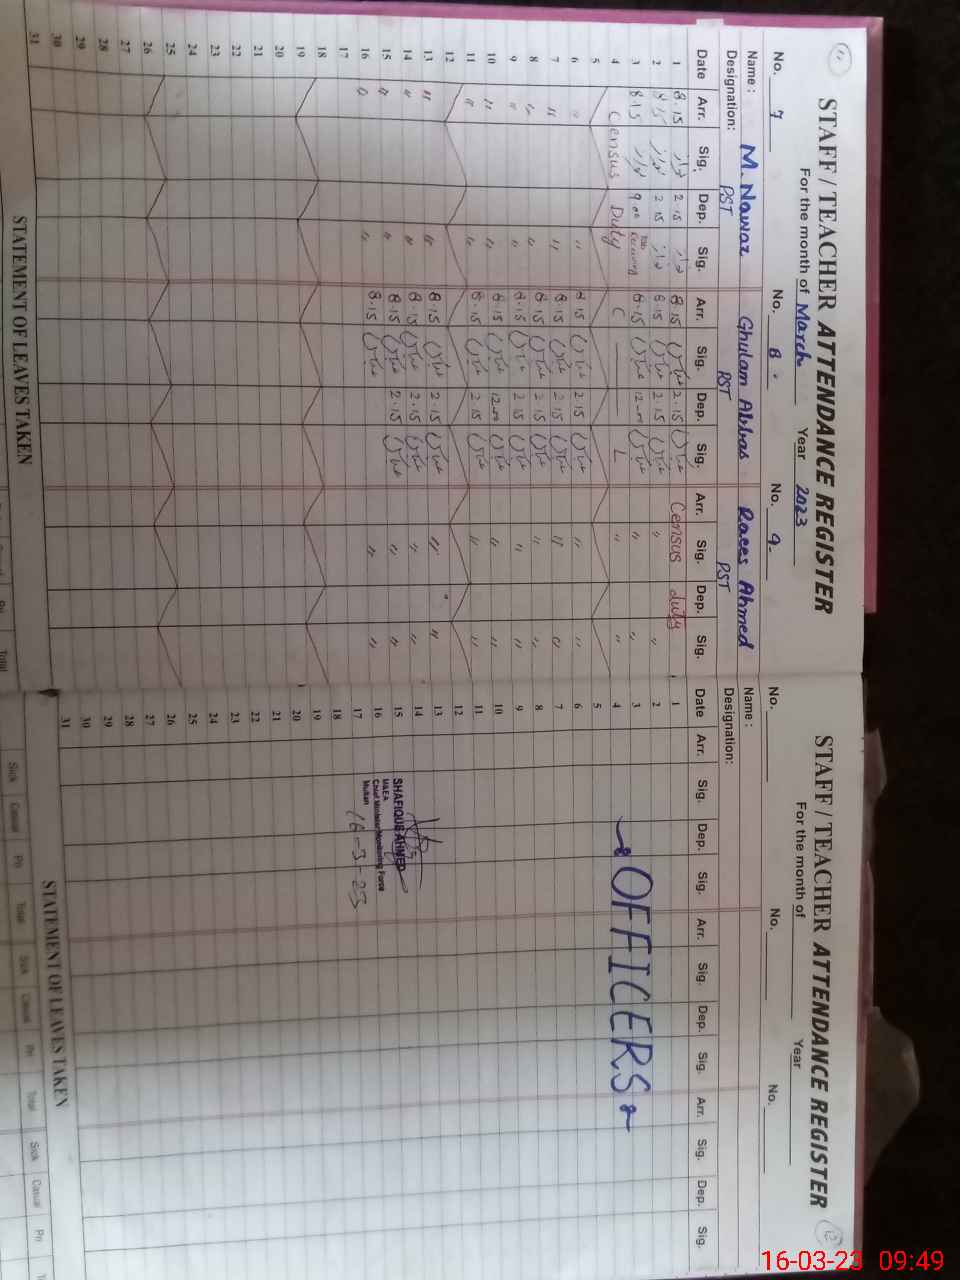 11
STAFF / TEACHER ATTENDANCE REGISTER
For the month of March Year 2023
No. 7 No. 8 No. 9
Name : M. Nawaz Ghulam Abbas Raees Ahmed
Designation: PST PST PST
Date Arr. Sig. Dep. Sig. Arr. Sig. Dep. Sig. Arr. Sig. Dep. Sig.
1 8.15 2.15 8.15 2.15 Census duty
2 8.15 2.15 8.15 2.15 " "
3 8.15 9.00 8.15 12-00 " "
4 Census Duty C L " "
5
6 " " 8.15 2.15 " "
7 " " 8.15 2.15 " "
8 " " 8.15 2.15 " "
9 " " 8.15 2.15 " "
10 " " 8.15 12-00 " "
11 " " 8.15 2.15 " "
12
13 " " 8.15 2.15 " "
14 " " 8.15 2.15 " "
15 " " 8.15 2.15 " "
16 " " 8.15 " "
17
18
19
20
21
22
23
24
25
26
27
28
29
30
31
STATEMENT OF LEAVES TAKEN
12
STAFF / TEACHER ATTENDANCE REGISTER
For the month of Year
No. No. No.
Name :
Designation:
Date Arr. Sig. Dep. Sig. Arr. Sig. Dep. Sig. Arr. Sig. Dep. Sig.
1
2
3
4
OFFICERS
5
6
7
8
9
10
11
12
13
14
15
SHAFIQUE AHMED
M&EA
16
Chief Minister Monitoring Force
Multan
17
16-3-23
18
19
20
21
22
23
24
25
26
27
28
29
30
31
STATEMENT OF LEAVES TAKEN
Sick Casual Pri Total Sick Casual Pri Total Sick Casual Pri
16-03-23 09:49